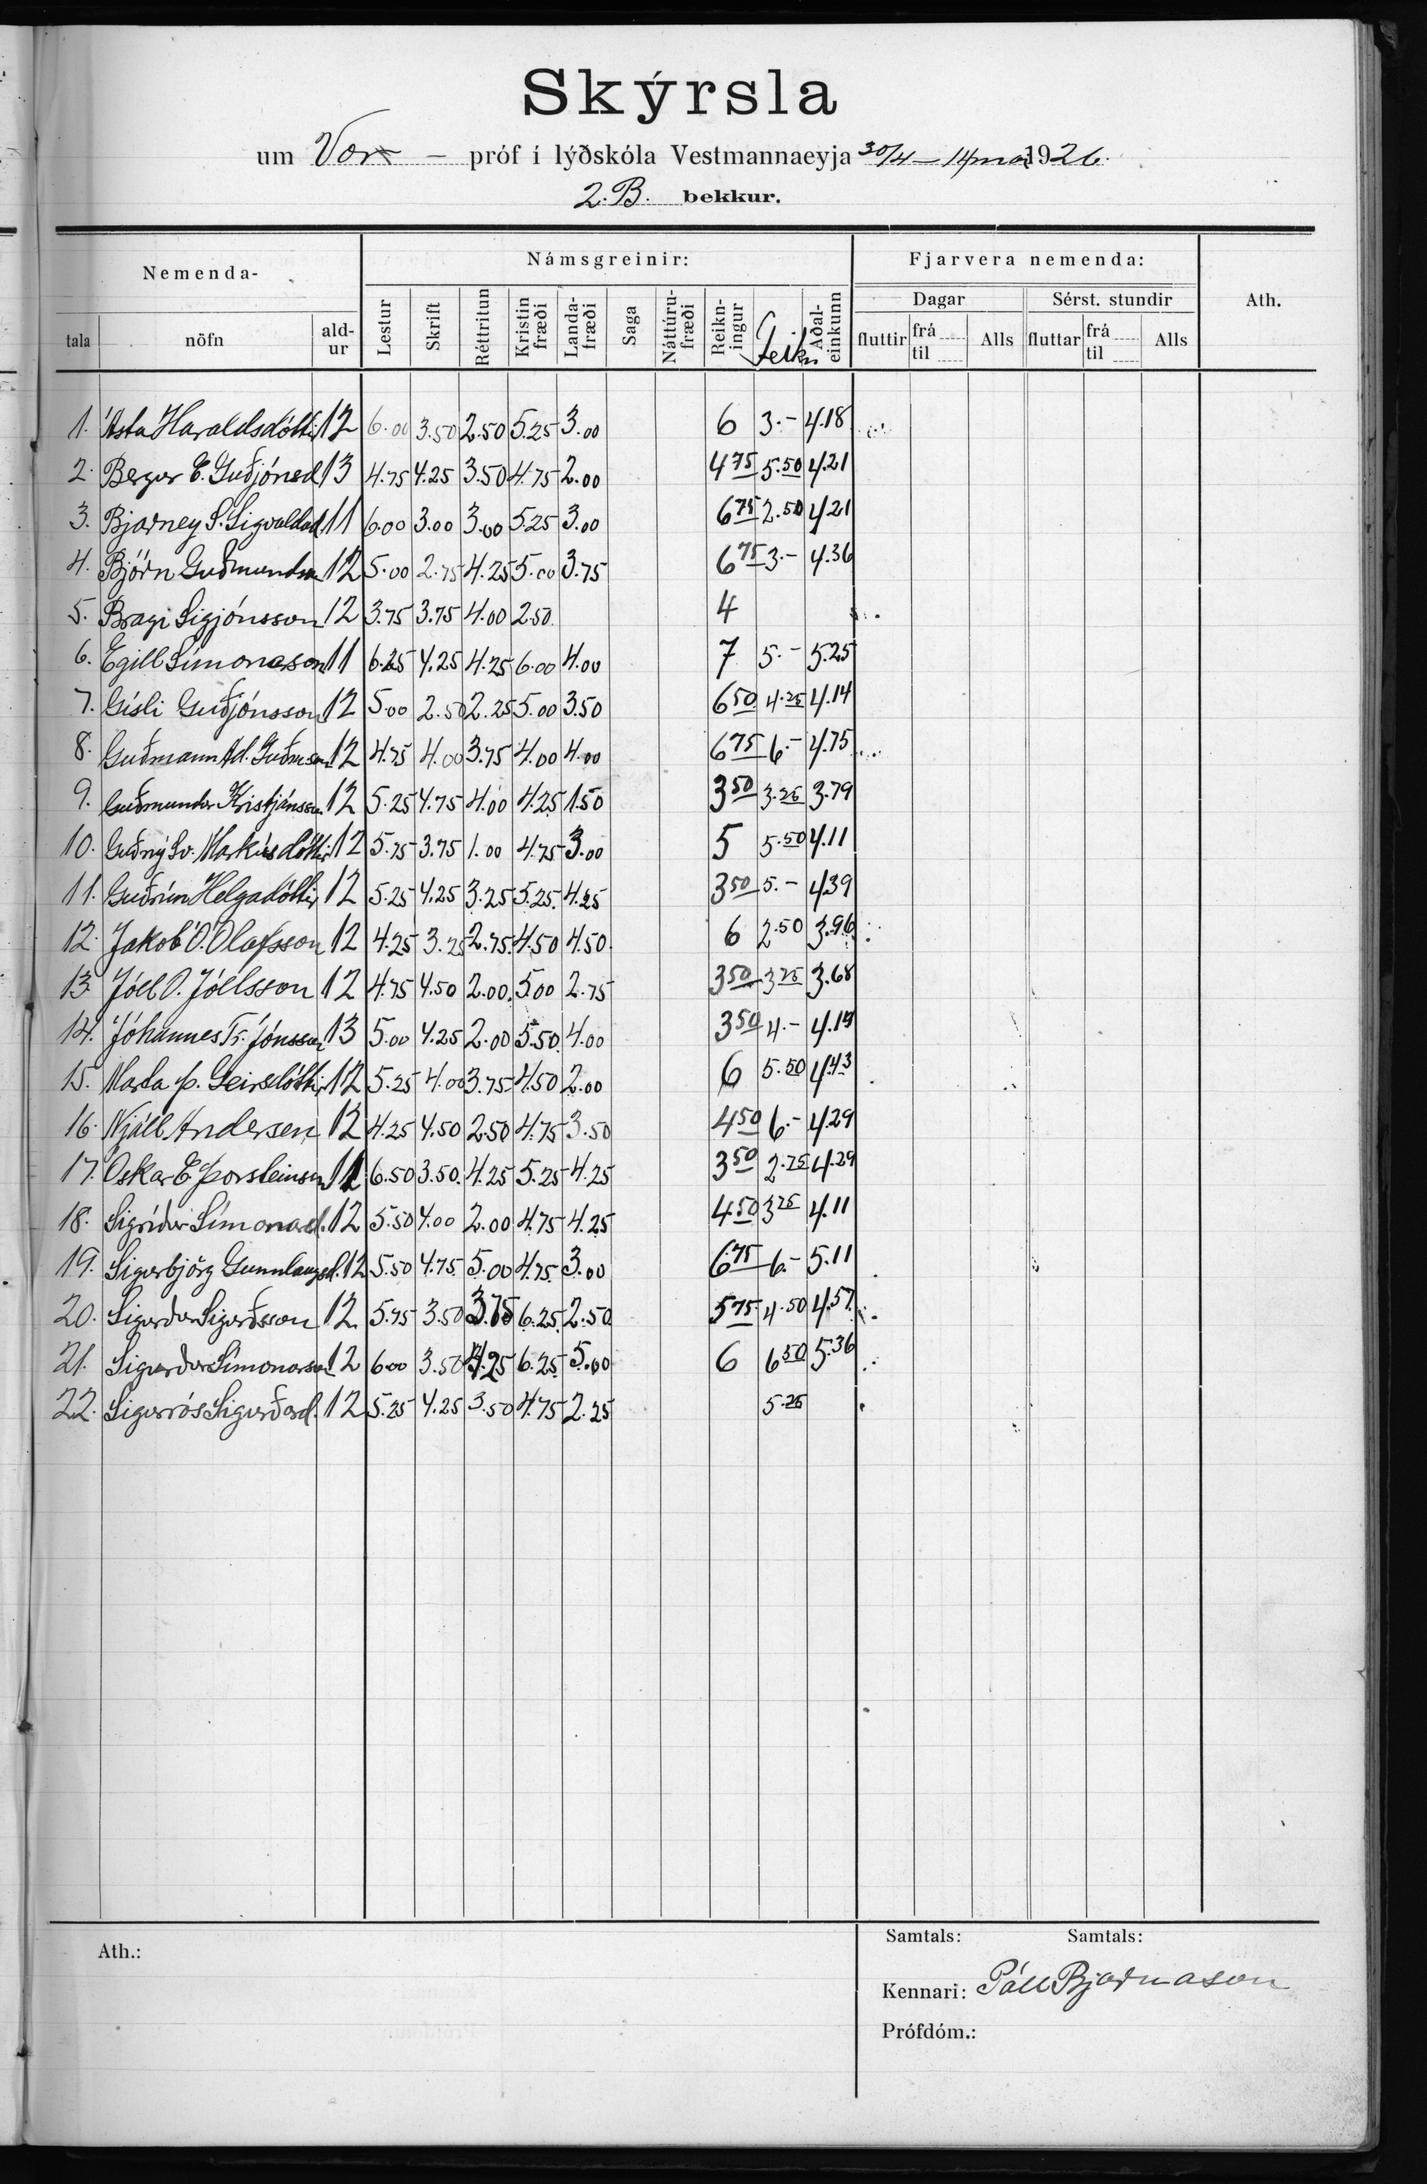 Skýrsla
um Vor - próf í lýðskóla Vestmannaeyja 30/4 – 14 maí 1926.
2. B. bekkur.
Nemenda- Námsgreinir: Fjarvera nemenda: Ath.
Dagar Sérst. stundir
tala nöfn ald-ur Lestur Skrift Réttritun Kristin fræði Landa-fræði Saga Náttúru-fræði Reikn-ingur Teikn Aðal-einkunn fluttir frá til Alls fluttar frá til Alls
1. Ásta Haraldsdóttir 12 6.00 3.50 2.50 5.25 3.00 6 3.- 4.18
2. Bergur E. Guðjónsd 13 4.75 4.25 3.50 4.75 2.00 4 75 5.50 4.21
3. Bjarney S. Sigvaldad 11 6.00 3.00 3.00 5.25 3.00 6 75 2.50 4.21
4. Björn Guðmundss 12 5.00 2.75 4.25 5.00 3.75 6 75 3.- 4.36
5. Bragi Sigjónsson 12 3.75 3.75 4.00 2.50 4
6. Egill Símonarson 11 6.25 4.25 4.25 6.00 4.00 7 5.- 5.25
7. Gísli Guðjónsson 12 5.00 2.50 2.25 5.00 3.50 6 50 4.25 4.14
8. Guðmann Ad. Guðmson 12 4.75 4.00 3.75 4.00 4.00 6 75 6.- 4.75
9. Guðmundur Kristjánsson 12 5.25 4.75 4.00 4.25 1.50 3 50 3.25 3.79
10. Guðný Sv. Markúsdóttir 12 5.75 3.75 1.00 4.75 3.00 5 5.50 4.11
11. Guðrún Helgadóttir 12 5.25 4.25 3.25 5.25 4.25 3 50 5.- 4.39
12. Jakob Ó. Ólafsson 12 4.25 3.25 2.75 4.50 4.50 6 2.50 3.96
13 Jóel O. Jóelsson 12 4.75 4.50 2.00 5.00 2.75 3 50 3 25 3.68
14. Jóhannes Tr. Jónsson 13 5.00 4.25 2.00 5.50 4.00 3 50 4.- 4.14
15. Marta Þ. Geirsdóttir 12 5.25 4.00 3.75 4.50 2.00 6 5.50 4.43
16. Njáll Andersen 12 4.25 4.50 2.50 4.75 3.50 4 50 6.- 4.29
17. Óskar E. Þorsteinsson 11 6.50 3.50 4.25 5.25 4.25 3 50 2.75 4.29
18. Sigríður Símonard. 12 5.50 4.00 2.00 4.75 4.25 4 50 3 75 4.11
19. Sigurbjörg Gunnlaugsd. 12 5.50 4.75 5.00 4.75 3.00 6.75 6.- 5.11
20. Sigurður Sigurðsson 12 5.75 3.50 3.75 6.25 2.50 5 75 4.50 4.57
21. Sigurður Símonarson 12 6.00 3.50 4.25 6.25 5.00 6 6 50 5.36
22. Sigurrós Sigurðard. 12 5.25 4.25 3.50 4.75 2.25 5.25
Samtals: Samtals:
Ath.:
Kennari: Páll Bjarnason
Prófdóm.: